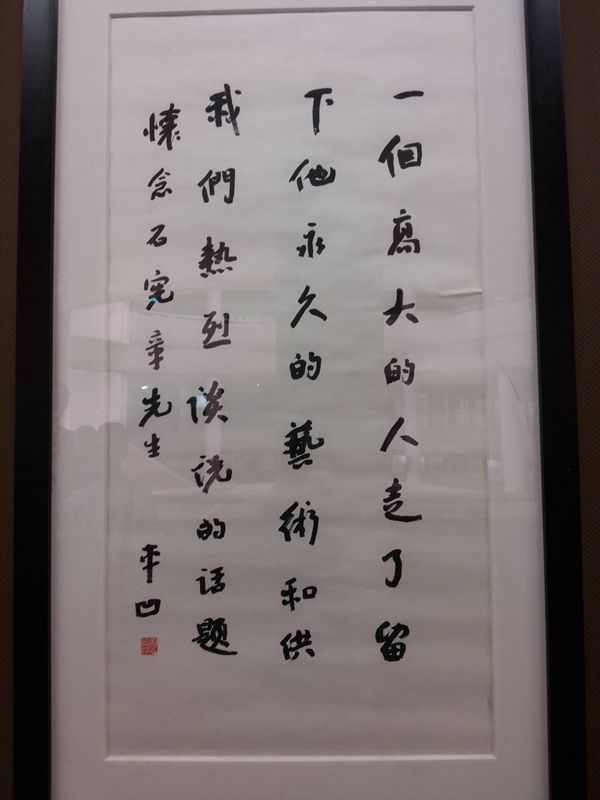 一個高大的人走了留
下他永久的藝術和供
我們熱烈谈说的话题
懷念石宪章先生
平凹